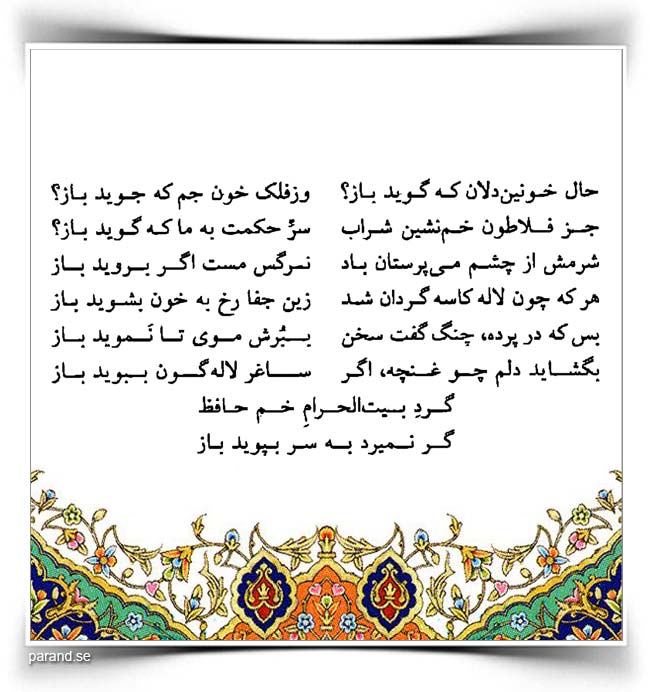 حال خونین‌دلان که گوید باز؟ وزفلک خون جم که جوید باز؟
جز فلاطون خم‌نشین شراب سرِّ حکمت به ما که گوید باز؟
شرمش از چشم می‌پرستان باد نرگس مست اگر بروید باز
هر که چون لاله کاسه گردان شد زین جفا رخ به خون بشوید باز
بس که در پرده، چنگ گفت سخن ببُرش موی تا نَموید باز
بگشاید دلم چو غنچه، اگر ساغر لاله‌گون ببوید باز
گردِ بیت‌الحرامِ خم حافظ
گر نمیرد به سر بپوید باز
parand.se